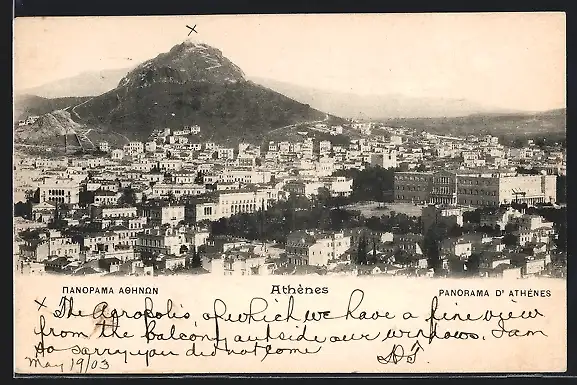 x
ΠΑΝΟΡΑΜΑ ΑΘΗΝΩΝ Athènes PANORAMA D' ATHÈNES
x The Acropolis of which we have a fine view
from the balcony outside our windows. I am
So sorry you did not come
May 19/03